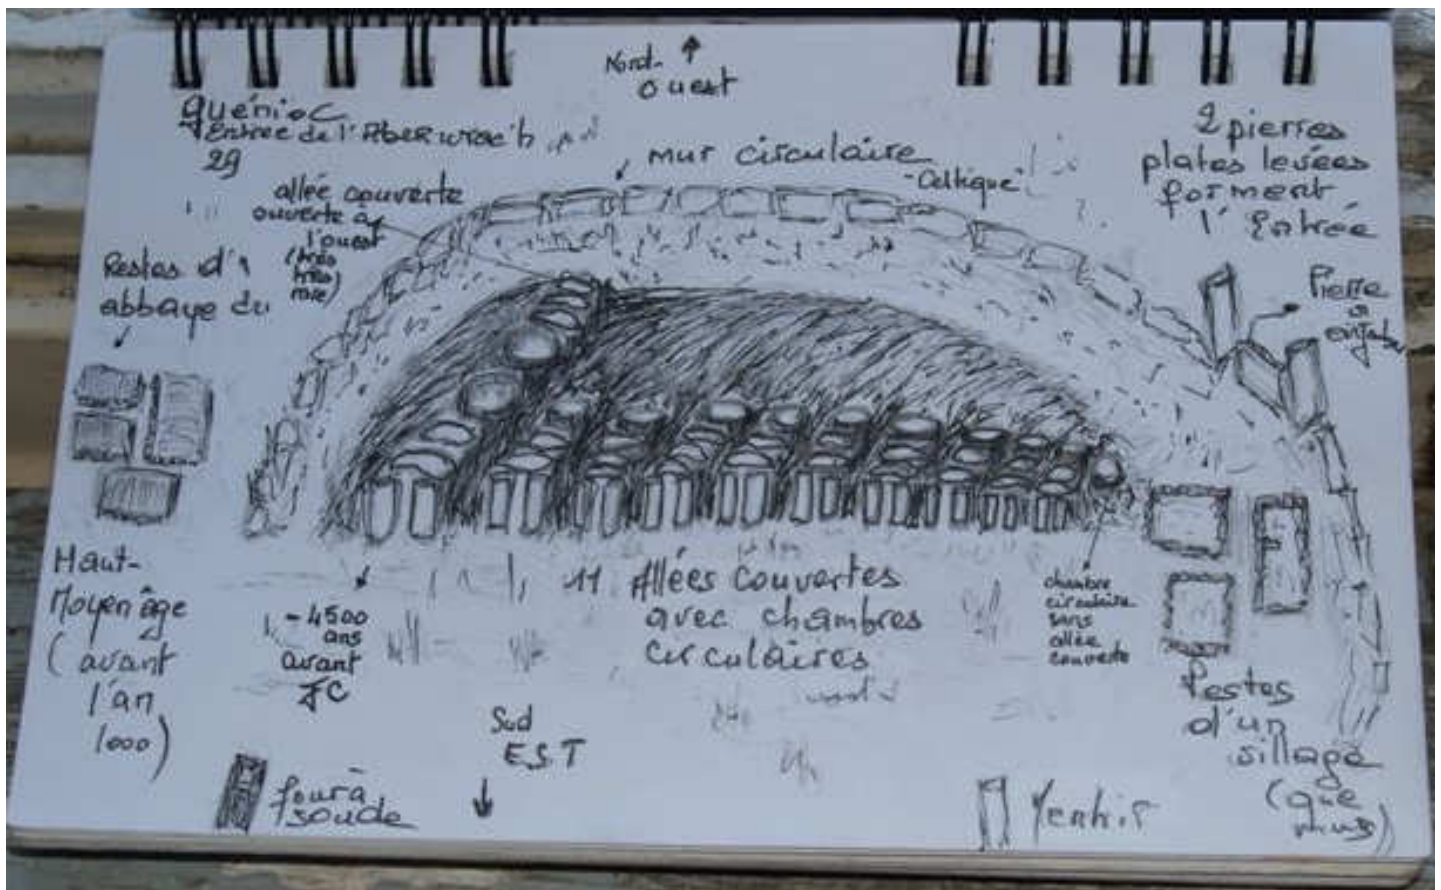 Nord-
Ouest
guénioc
Entrée de l'Aber wrac'h
29
mur circulaire
"Celtique"
2 pierres
plates levées
forment
l'Entrée
allée couverte
ouverte à
l'ouest
(très
très
rare)
Restes d'1
abbaye du
Pierre
à
Haut-
Moyen âge
(avant
l'an
1000)
- 4500
ans
avant
JC
11 Allées couvertes
avec chambres
circulaires
chambre
circulaire
sans
allée
couverte
Restes
d'un
village
(que
murs)
Sud
E.S.T
four à
soude
Menhir